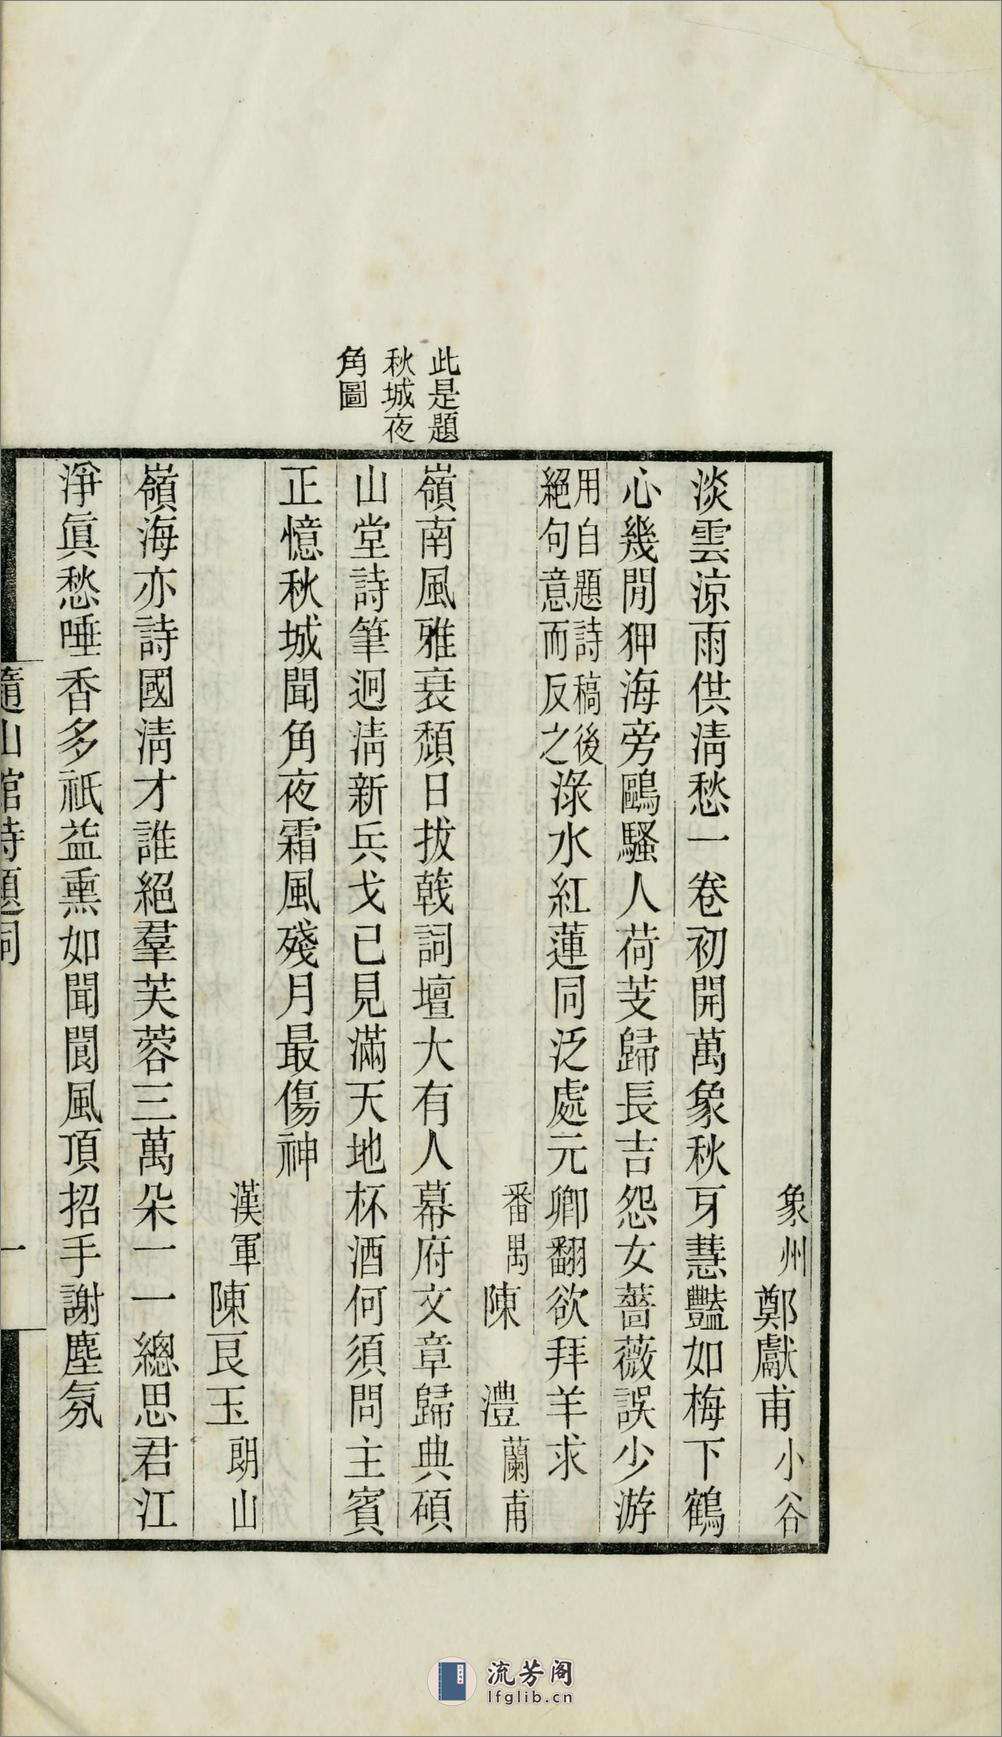 此是題
秋城夜
角圖
象州鄭獻甫小谷
淡雲涼雨供淸愁一卷初開萬象秋牙慧豔如梅下鶴
心幾閒狎海旁鷗騷人荷芰歸長吉怨女薔薇誤少游
用自題詩稿後
絕句意而反之
淥水紅蓮同泛處元卿翻欲拜羊求
番禺陳澧蘭甫
嶺南風雅衰頽日拔戟詞壇大有人幕府文章歸典碩
山堂詩筆迥淸新兵戈已見滿天地杯酒何須問主賓
正憶秋城聞角夜霜風殘月最傷神
漢軍陳良玉朗山
嶺海亦詩國淸才誰絕羣芙蓉三萬朵一一總思君江
淨眞愁唾香多祇益熏如聞閬風頂招手謝塵氛
隨山館詩題詞
一
流芳阁
lfglib.cn